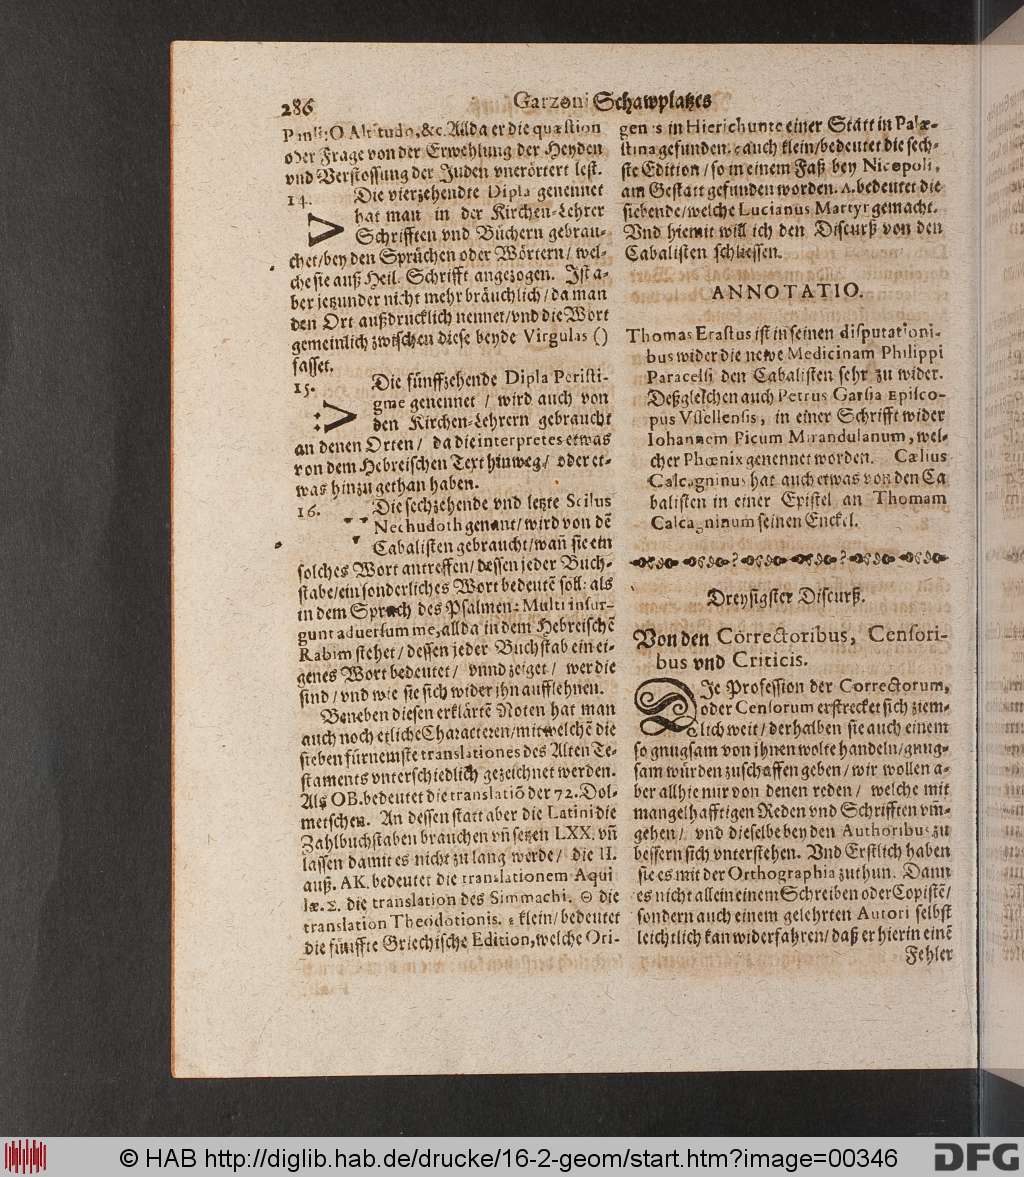 286
Garzoni Schawplatzes
Pauli: O Altitudo, &c. Allda er die quæstion
oder Frage von der Erwehlung der Heyden
vnd Verstossung der Juden vnerörtert lest.
14. Die vierzehendte Dipla genennet
> hat man in der Kirchen-Lehrer
Schrifften vnd Büchern gebrau-
chet/ bey den Sprüchen oder Wörtern/ wel-
che sie auß Heil. Schrifft angezogen. Jst a-
ber jetzunder nicht mehr bräuchlich/ da man
den Ort außdrucklich nennet/ vnd die Wort
gemeinlich zwischen diese beyde Virgulas ()
fasset.
15. Die fünffzehende Dipla Peristi-
:> gme genennet / wird auch von
den Kirchen-Lehrern gebraucht
an denen Orten/ da die interpretes etwas
von dem Hebreischen Text hinweg/ oder et-
was hinzu gethan haben.
16. Die sechzehende vnd letzte Stilus
Nechudoth genant/ wird von dē
Cabalisten gebraucht/ wañ sie ein
solches Wort antreffen/ dessen jeder Buch-
stabe/ ein sonderliches Wort bedeutē soll: als
in dem Spruch des Psalmen: Multi insur-
gunt aduersum me, allda in dem Hebreischē
Rabim stehet/ dessen jeder Buchstab ein ei-
genes Wort bedeutet/ vnnd zeiget/ wer die
sind/ vnd wie sie sich wider ihn aufflehnen.
Beneben diesen erklärtē Noten hat man
auch noch etliche Characteren/ mit welchē die
sieben fürnemste translationes des Alten Te-
staments vnterschiedlich gezeichnet werden.
Als OB. bedeutet die translatiō der 72. Dol-
metschen. An dessen statt aber die Latini die
Zahlbuchstaben brauchen vñ setzen LXX. vñ
lassen damit es nicht zu lang werde/ die II.
auß. AK. bedeutet die translationem Aqui
læ. Σ. die translation des Simmachi. Θ die
translation Theodotionis. ε klein/ bedeutet
die fünffte Griechische Edition, welche Ori-
genes in Hierichunte einer Statt in Palæ-
stina gefunden. ς auch klein/ bedeutet die sech-
ste Edition / so in einem Faß bey Nicopoli,
am Gestatt gefunden worden. Λ. bedeutet die
siebende/ welche Lucianus Martyr gemacht.
Vnd hiemit will ich den Discurß von den
Cabalisten schliessen.
ANNOTATIO.
Thomas Erastus ist in seinen disputationi-
bus wider die newe Medicinam Philippi
Paracelsi den Cabalisten sehr zu wider.
Deßgleichen auch Petrus Garsia Episco-
pus Vssellensis, in einer Schrifft wider
Iohannem Picum Mirandulanum, wel-
cher Phœnix genennet worden. Cælius
Calcagninus hat auch etwas von den Ca
balisten in einer Epistel an Thomam
Calcagninum seinen Enckel.
Dreysigster Discurß.
Von den Correctoribus, Censori-
bus vnd Criticis.
DJe Profession der Correctorum,
oder Censorum erstrecket sich ziem-
lich weit/ derhalben sie auch einem
so gnugsam von jhnen wolte handeln/ gnug-
sam würden zuschaffen geben/ wir wollen a-
ber allhie nur von denen reden/ welche mit
mangelhafftigen Reden vnd Schrifften vm̃-
gehen/ vnd dieselbe bey den Authoribus zu
bessern sich vnterstehen. Vnd Erstlich haben
sie es mit der Orthographia zuthun. Dann
es nicht allein einem Schreiben oder Copistē/
sondern auch einem gelehrten Autori selbst
leichtlich kan widerfahren/ daß er hierin einē
Fehler
© HAB http://diglib.hab.de/drucke/16-2-geom/start.htm?image=00346
DFG